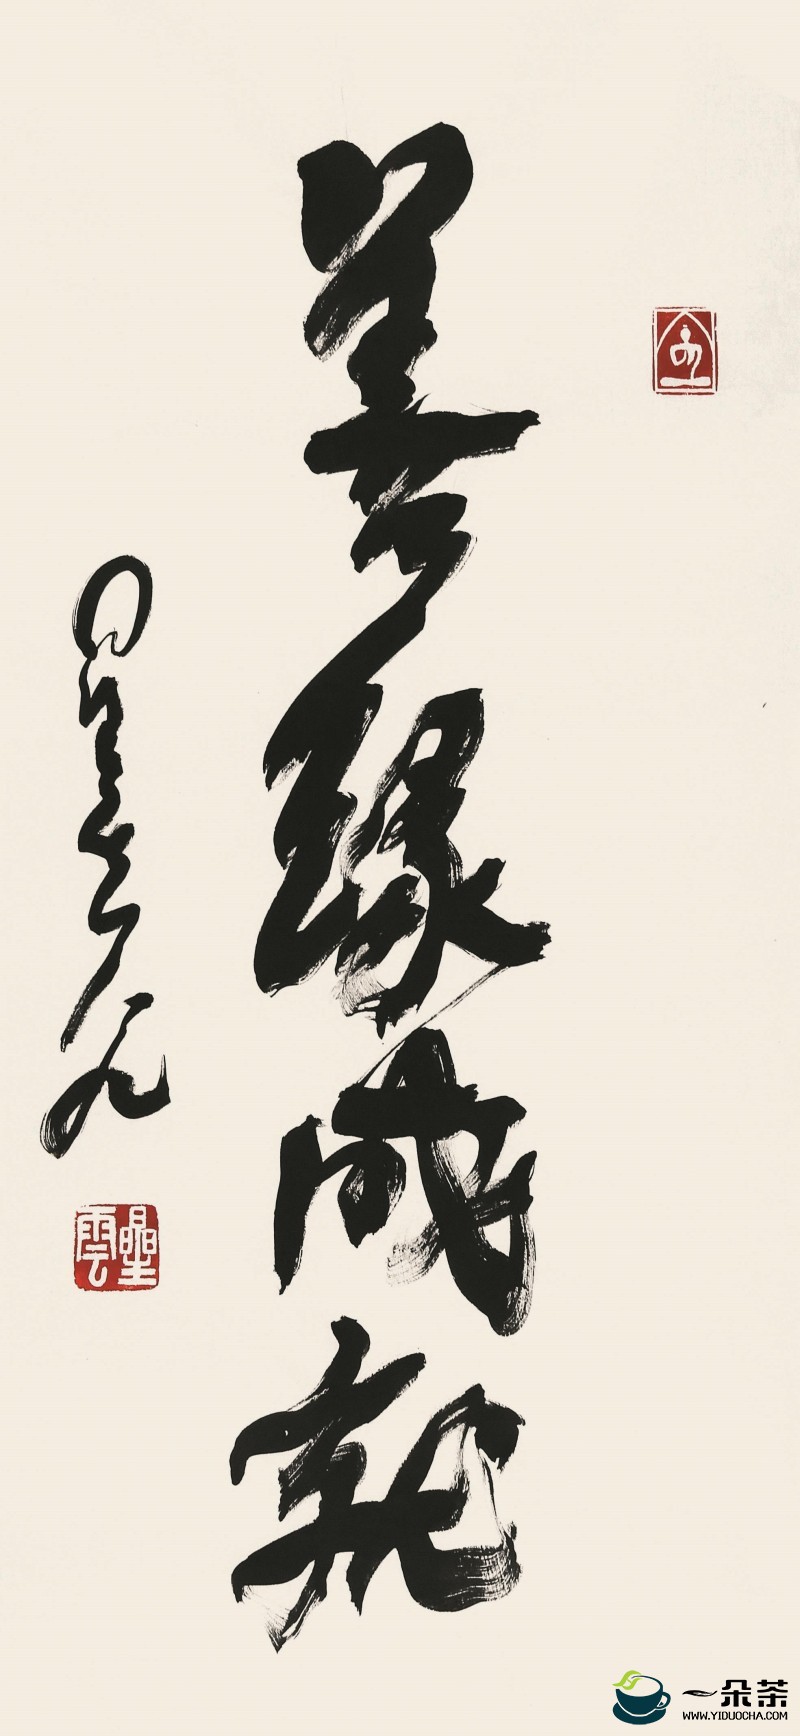 善緣成就
星雲
星雲
一朵茶
WWW.YIDUOCHA.COM